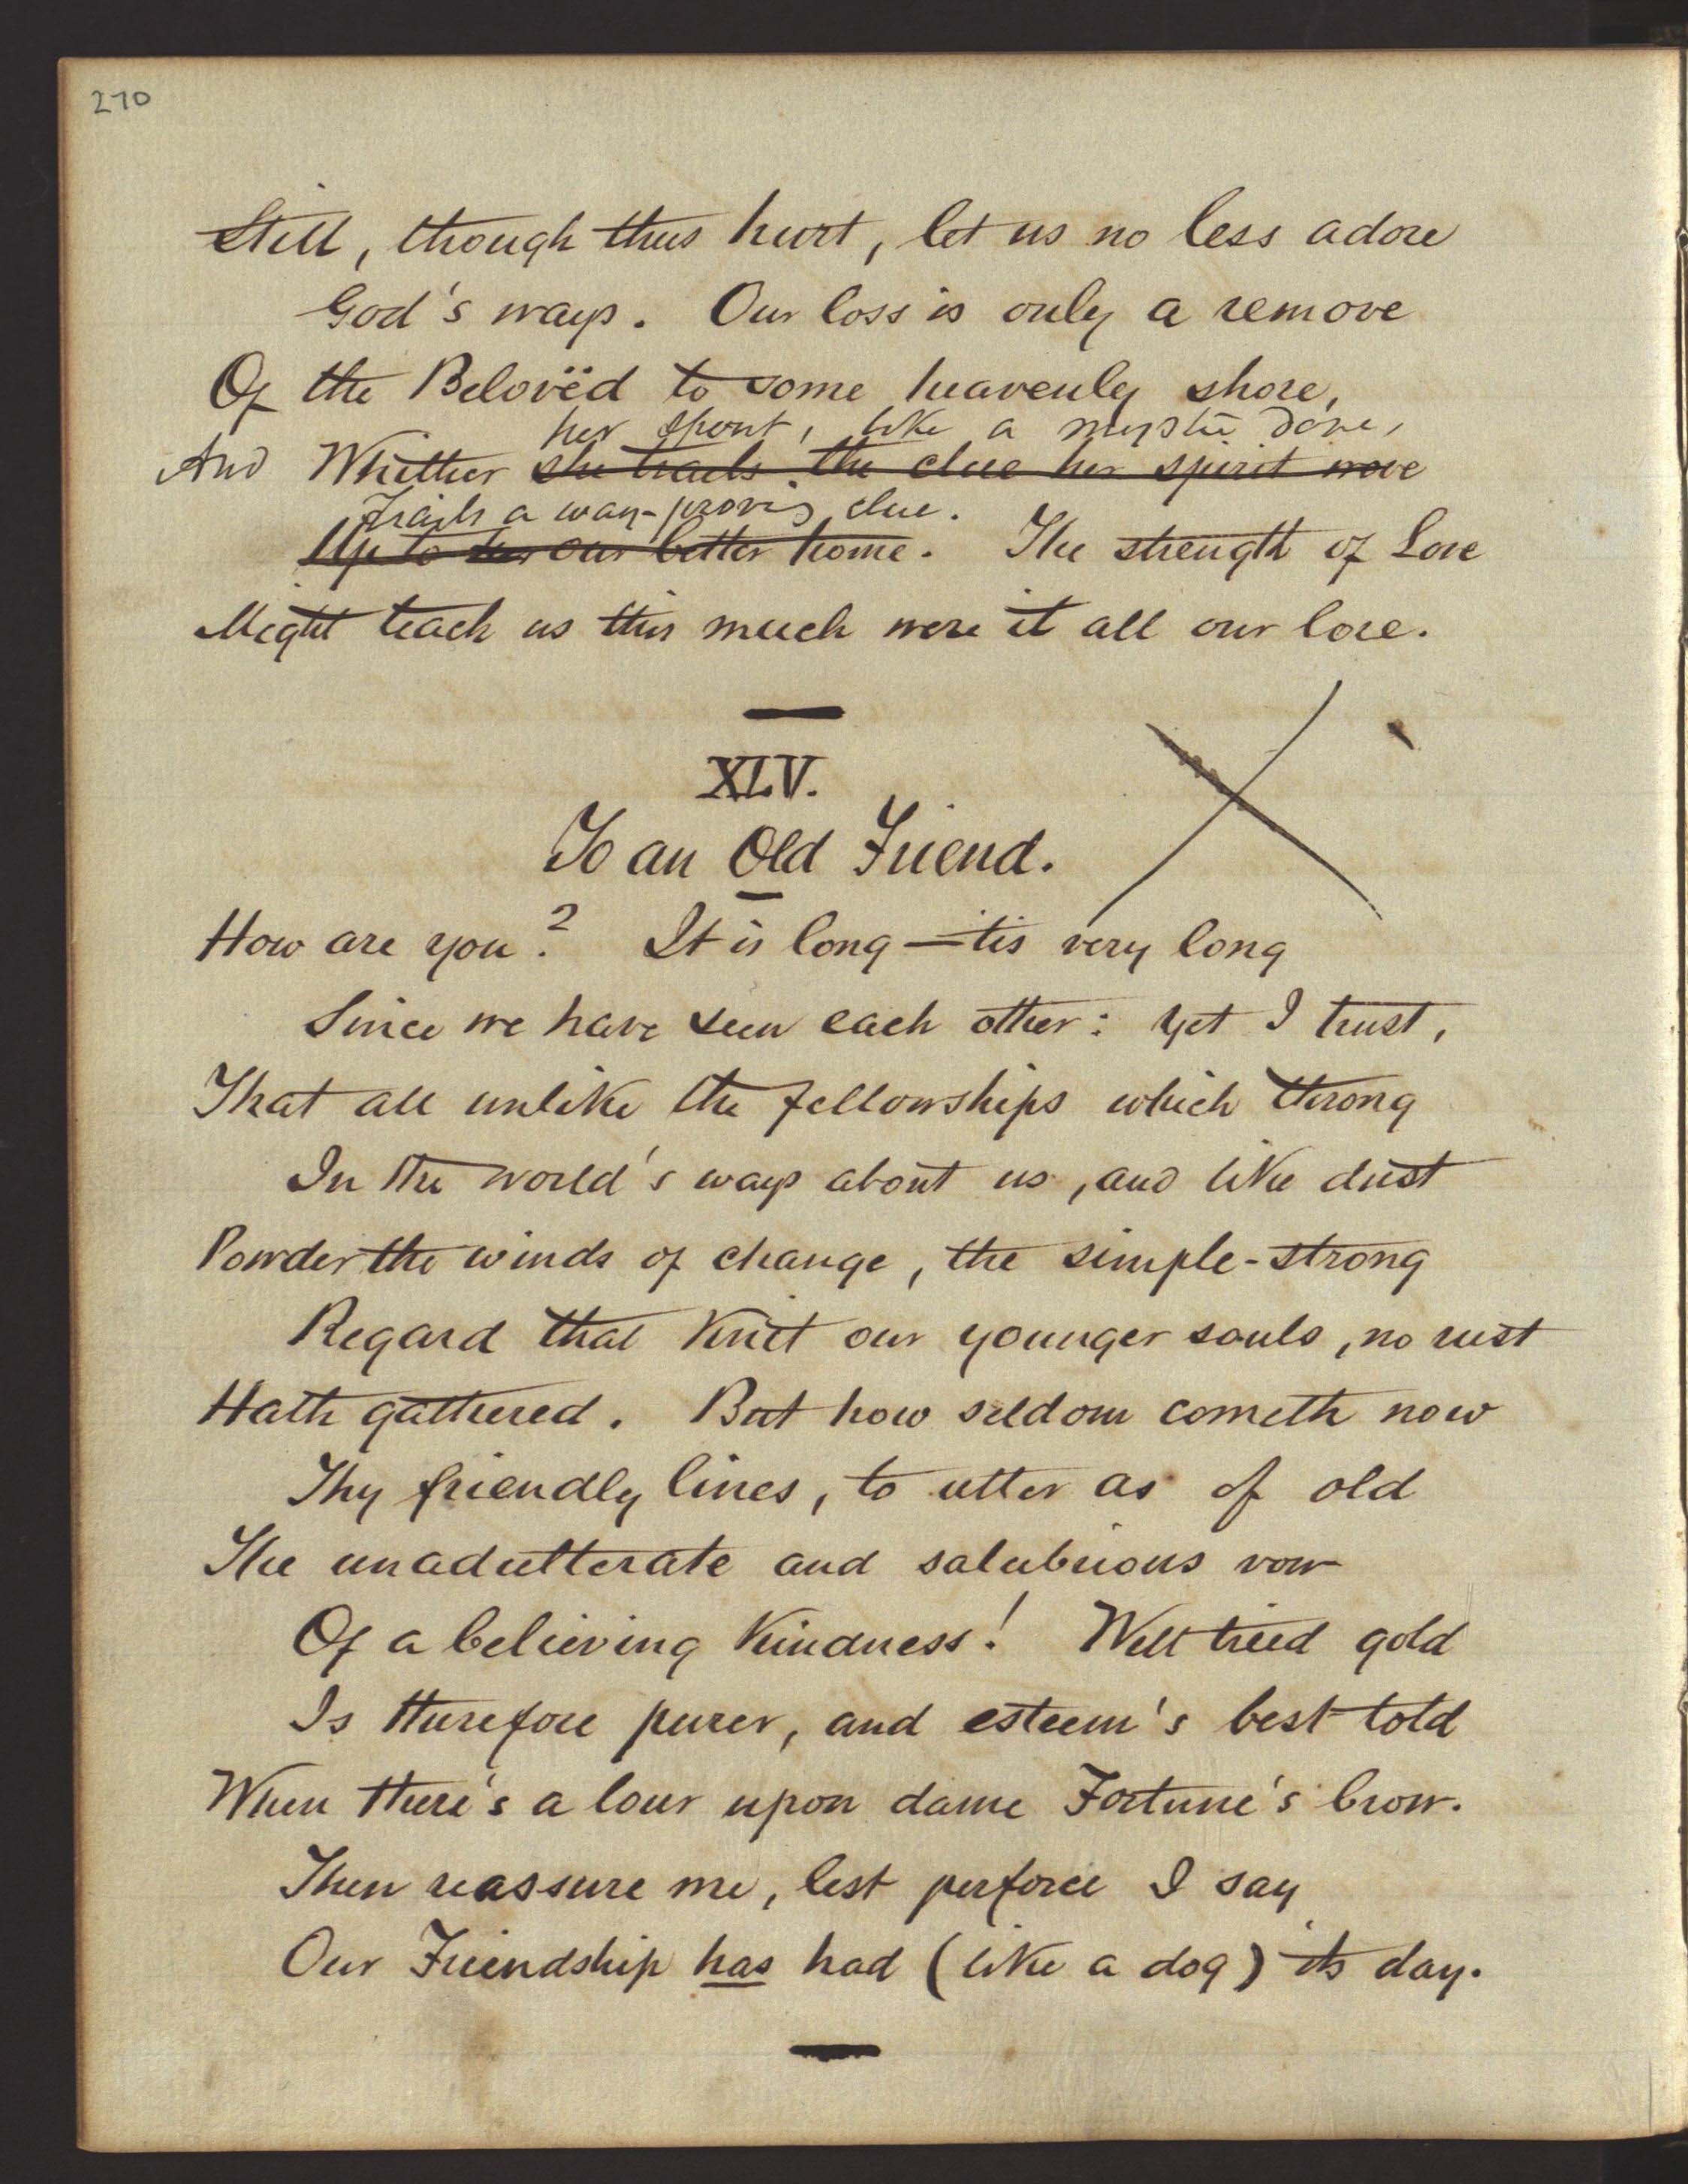 270
Still, though thus hurt, let us no less adore
God's ways. Our loss is only a remove
Of the Belovëd to some heavenly shore,
her spirit, like a mystic dove,
And Whither she trails the clue her spirit wove
Trails a way-proving clue.
Up to her our better home. The strength of Love
Might teach us this much were it all our lore.
XLV.
To an Old Friend.
How are you? It is long—'tis very long
Since we have seen each other: yet I trust,
That all unlike the fellowships which throng
In the world's ways about us, and like dust
Powder the winds of change, the simple-strong
Regard that knit our younger souls, no rust
Hath gathered. But how seldom cometh now
Thy friendly lines, to utter as of old
The unadulterate and salubrious vow
Of a believing kindness! Well tried gold
Is therefore purer, and esteem's best told
When there's a lour upon dame Fortune's brow.
Then reassure me, lest perforce I say
Our Friendship has had (like a dog) its day.